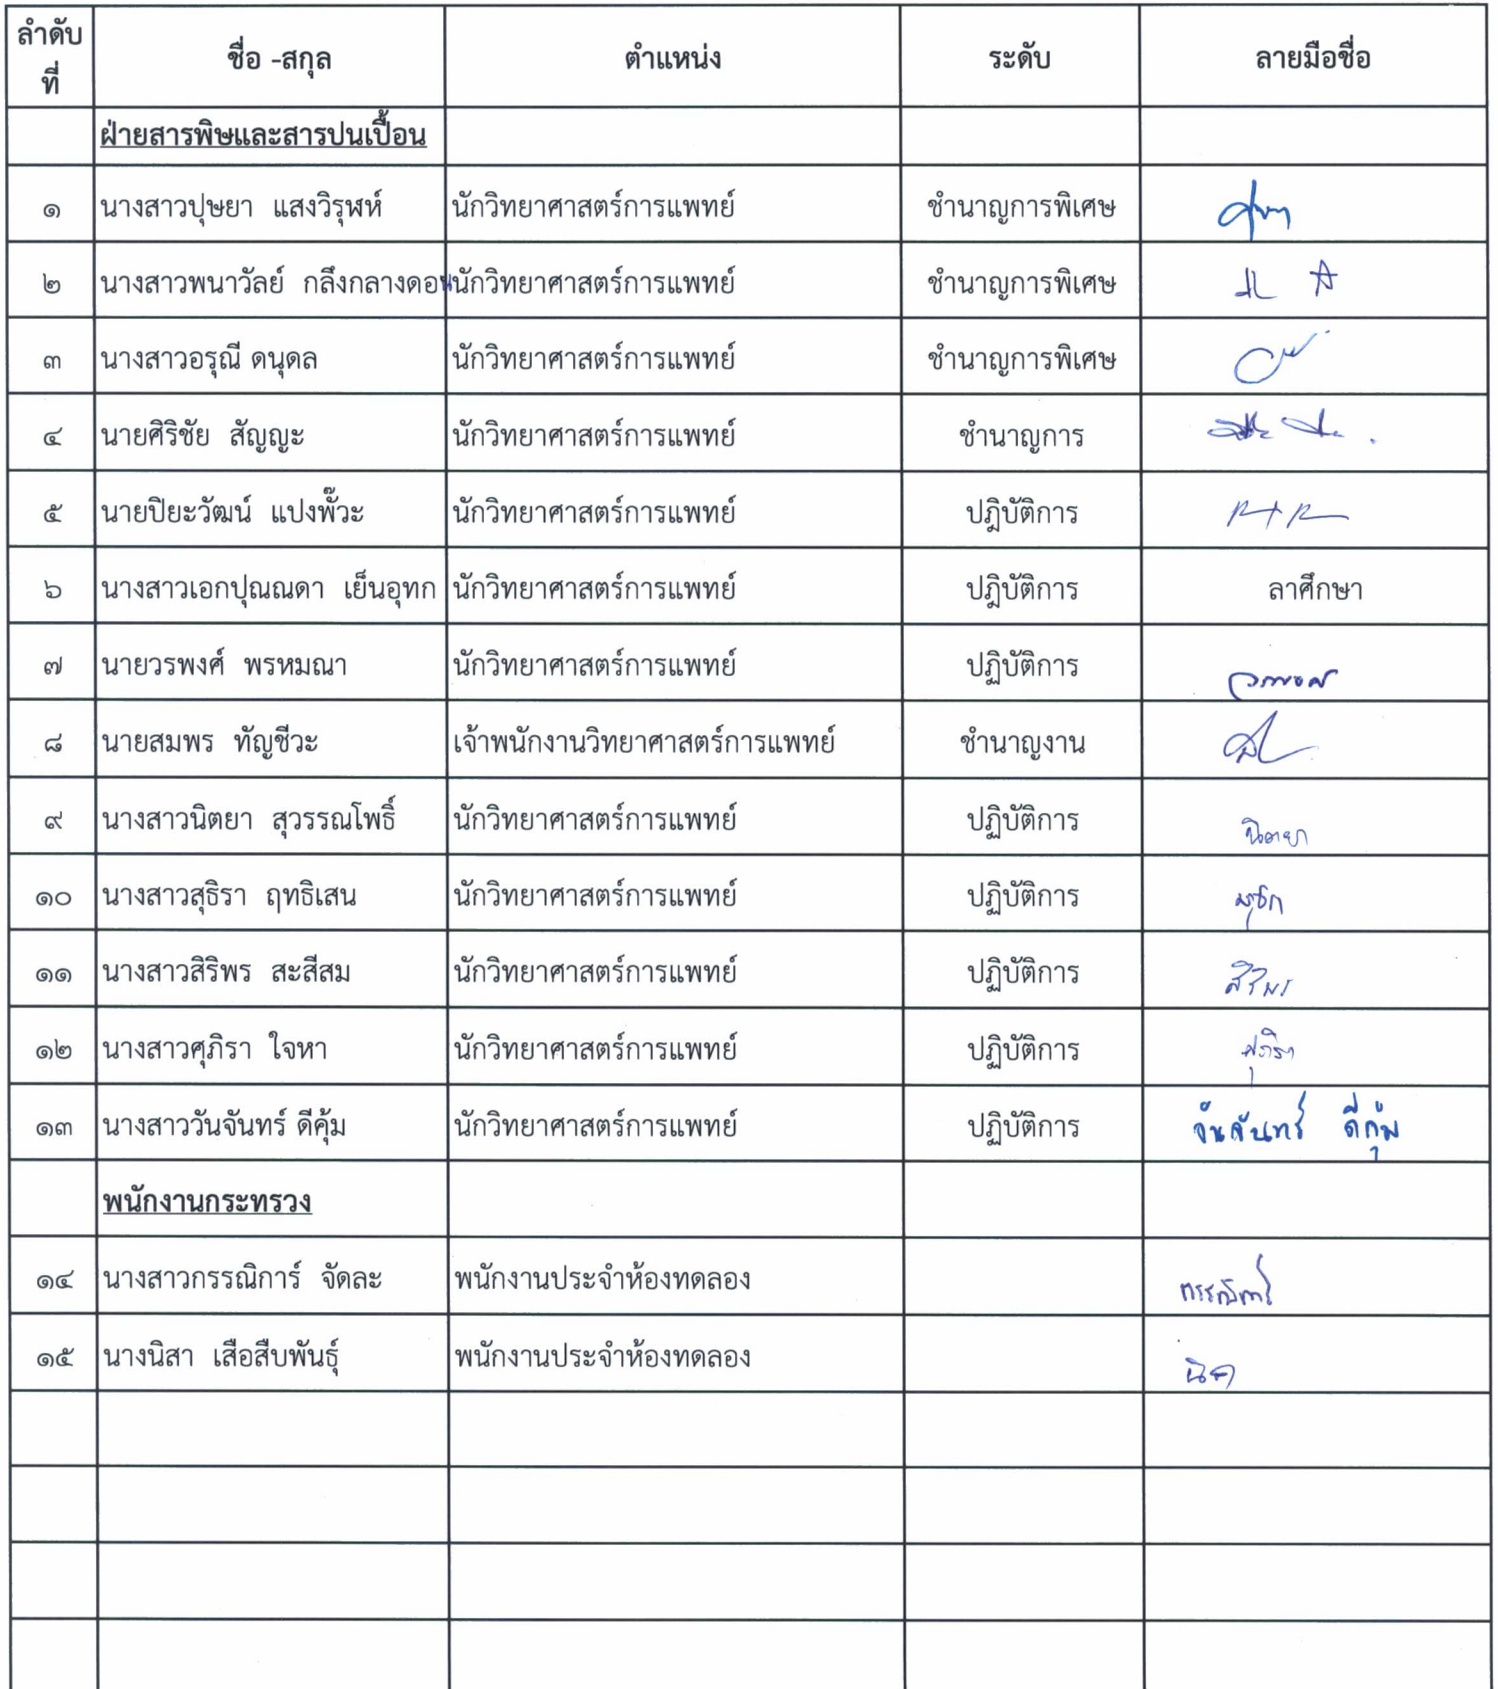 ลำดับที่ ชื่อ -สกุล ตำแหน่ง ระดับ ลายมือชื่อ
ฝ่ายสารพิษและสารปนเปื้อน
๑ นางสาวปุษยา แสงวิรุฬห์ นักวิทยาศาสตร์การแพทย์ ชำนาญการพิเศษ
๒ นางสาวพนาวัลย์ กลึงกลางดอน นักวิทยาศาสตร์การแพทย์ ชำนาญการพิเศษ
๓ นางสาวอรุณี ดนุดล นักวิทยาศาสตร์การแพทย์ ชำนาญการพิเศษ
๔ นายศิริชัย สัญญะ นักวิทยาศาสตร์การแพทย์ ชำนาญการ
๕ นายปิยะวัฒน์ แปงพั๊วะ นักวิทยาศาสตร์การแพทย์ ปฎิบัติการ
๖ นางสาวเอกปุณณดา เย็นอุทก นักวิทยาศาสตร์การแพทย์ ปฎิบัติการ ลาศึกษา
๗ นายวรพงศ์ พรหมณา นักวิทยาศาสตร์การแพทย์ ปฏิบัติการ
๘ นายสมพร ทัญชีวะ เจ้าพนักงานวิทยาศาสตร์การแพทย์ ชำนาญงาน
๙ นางสาวนิตยา สุวรรณโพธิ์ นักวิทยาศาสตร์การแพทย์ ปฏิบัติการ นิตยา
๑๐ นางสาวสุธิรา ฤทธิเสน นักวิทยาศาสตร์การแพทย์ ปฏิบัติการ
๑๑ นางสาวสิริพร สะสีสม นักวิทยาศาสตร์การแพทย์ ปฏิบัติการ สิริพร
๑๒ นางสาวศุภิรา ใจหา นักวิทยาศาสตร์การแพทย์ ปฏิบัติการ ศุภิรา
๑๓ นางสาววันจันทร์ ดีคุ้ม นักวิทยาศาสตร์การแพทย์ ปฏิบัติการ วันจันทร์ ดีคุ้ม
พนักงานกระทรวง
๑๔ นางสาวกรรณิการ์ จัดละ พนักงานประจำห้องทดลอง กรรณิการ์
๑๕ นางนิสา เสือสืบพันธุ์ พนักงานประจำห้องทดลอง